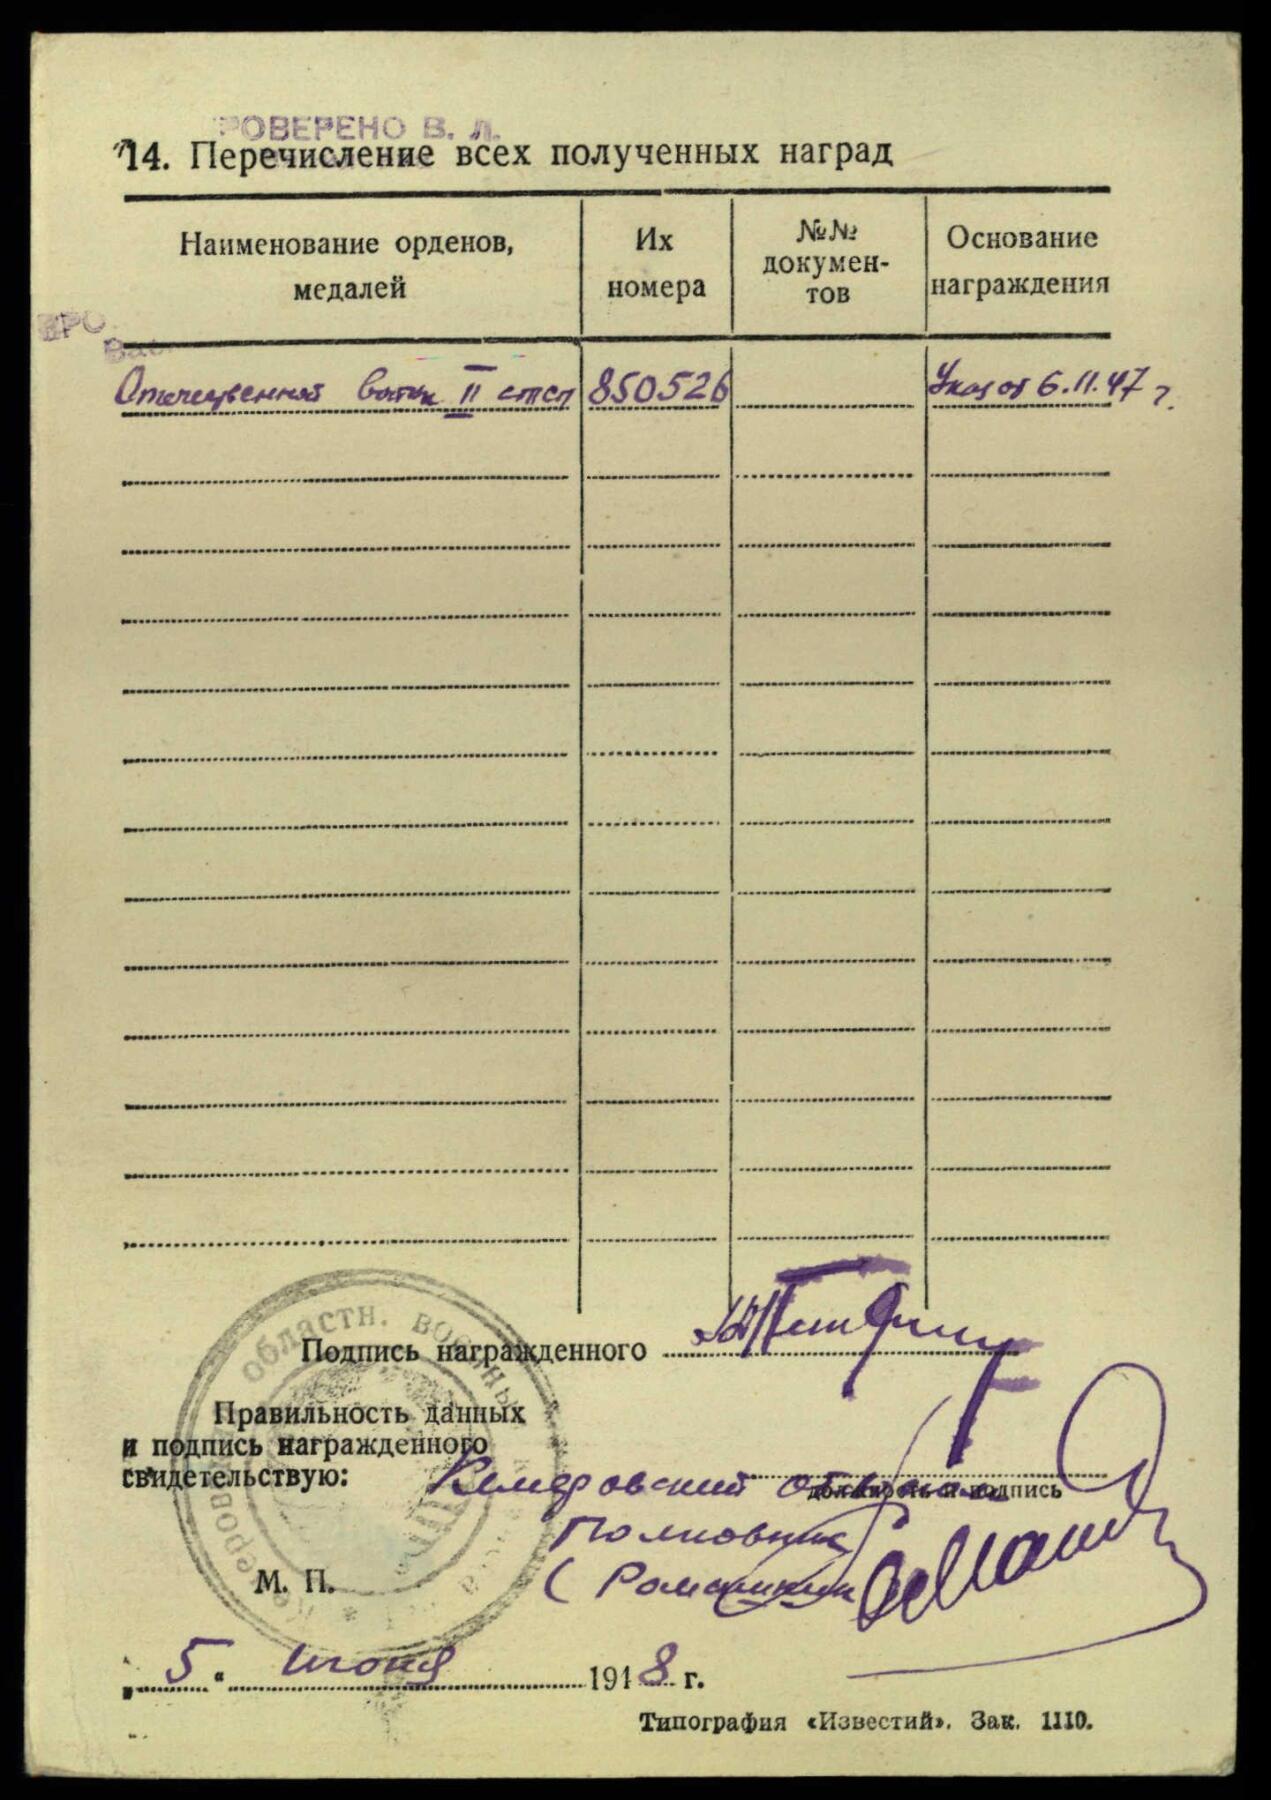 РОВЕРЕНО В. Л.
14. Перечисление всех полученных наград
Наименование орденов, медалей
Их номера
№№ документов
Основание награждения
Отечественной войны II степ 850526 Указ от 6.11.47 г.
Подпись награжденного
Правильность данных
и подпись награжденного
свидетельствую:
Кемеровский облвоенком
должность и подпись
Полковник
(Ромашкин
М. П.
Кемеровский областн. военный
5 " июня 1948 г.
Типография «Известий». Зак. 1110.